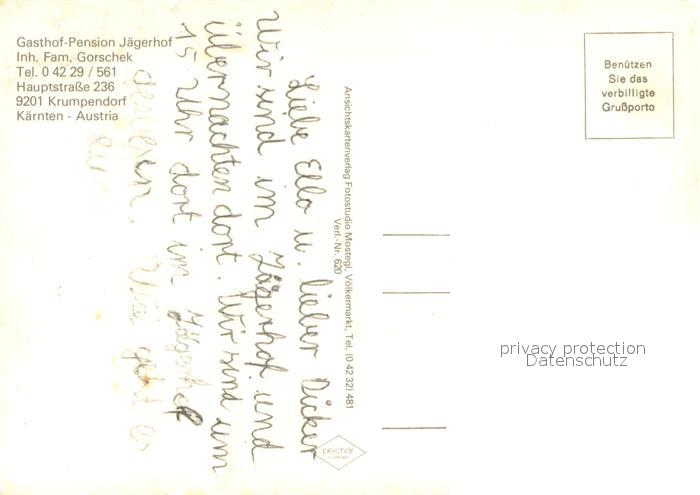 Gasthof-Pension Jägerhof
Inh. Fam. Gorschek
Tel. 0 42 29 / 561
Hauptstraße 236
9201 Krumpendorf
Kärnten - Austria
Benützen
Sie das
verbilligte
Grußporto
Liebe Ella u. lieber Dicker
Wir sind im Jägerhof und
übernachten dort. Wir sind um
15 Uhr dort im Jägerhof
gewesen. Wie geht es
euch
Ansichtskartenverlag Fotostudio Mostegl, Völkermarkt, Tel. (0 42 32) 481
Verl.-Nr. 620
peichär
privacy protection
Datenschutz